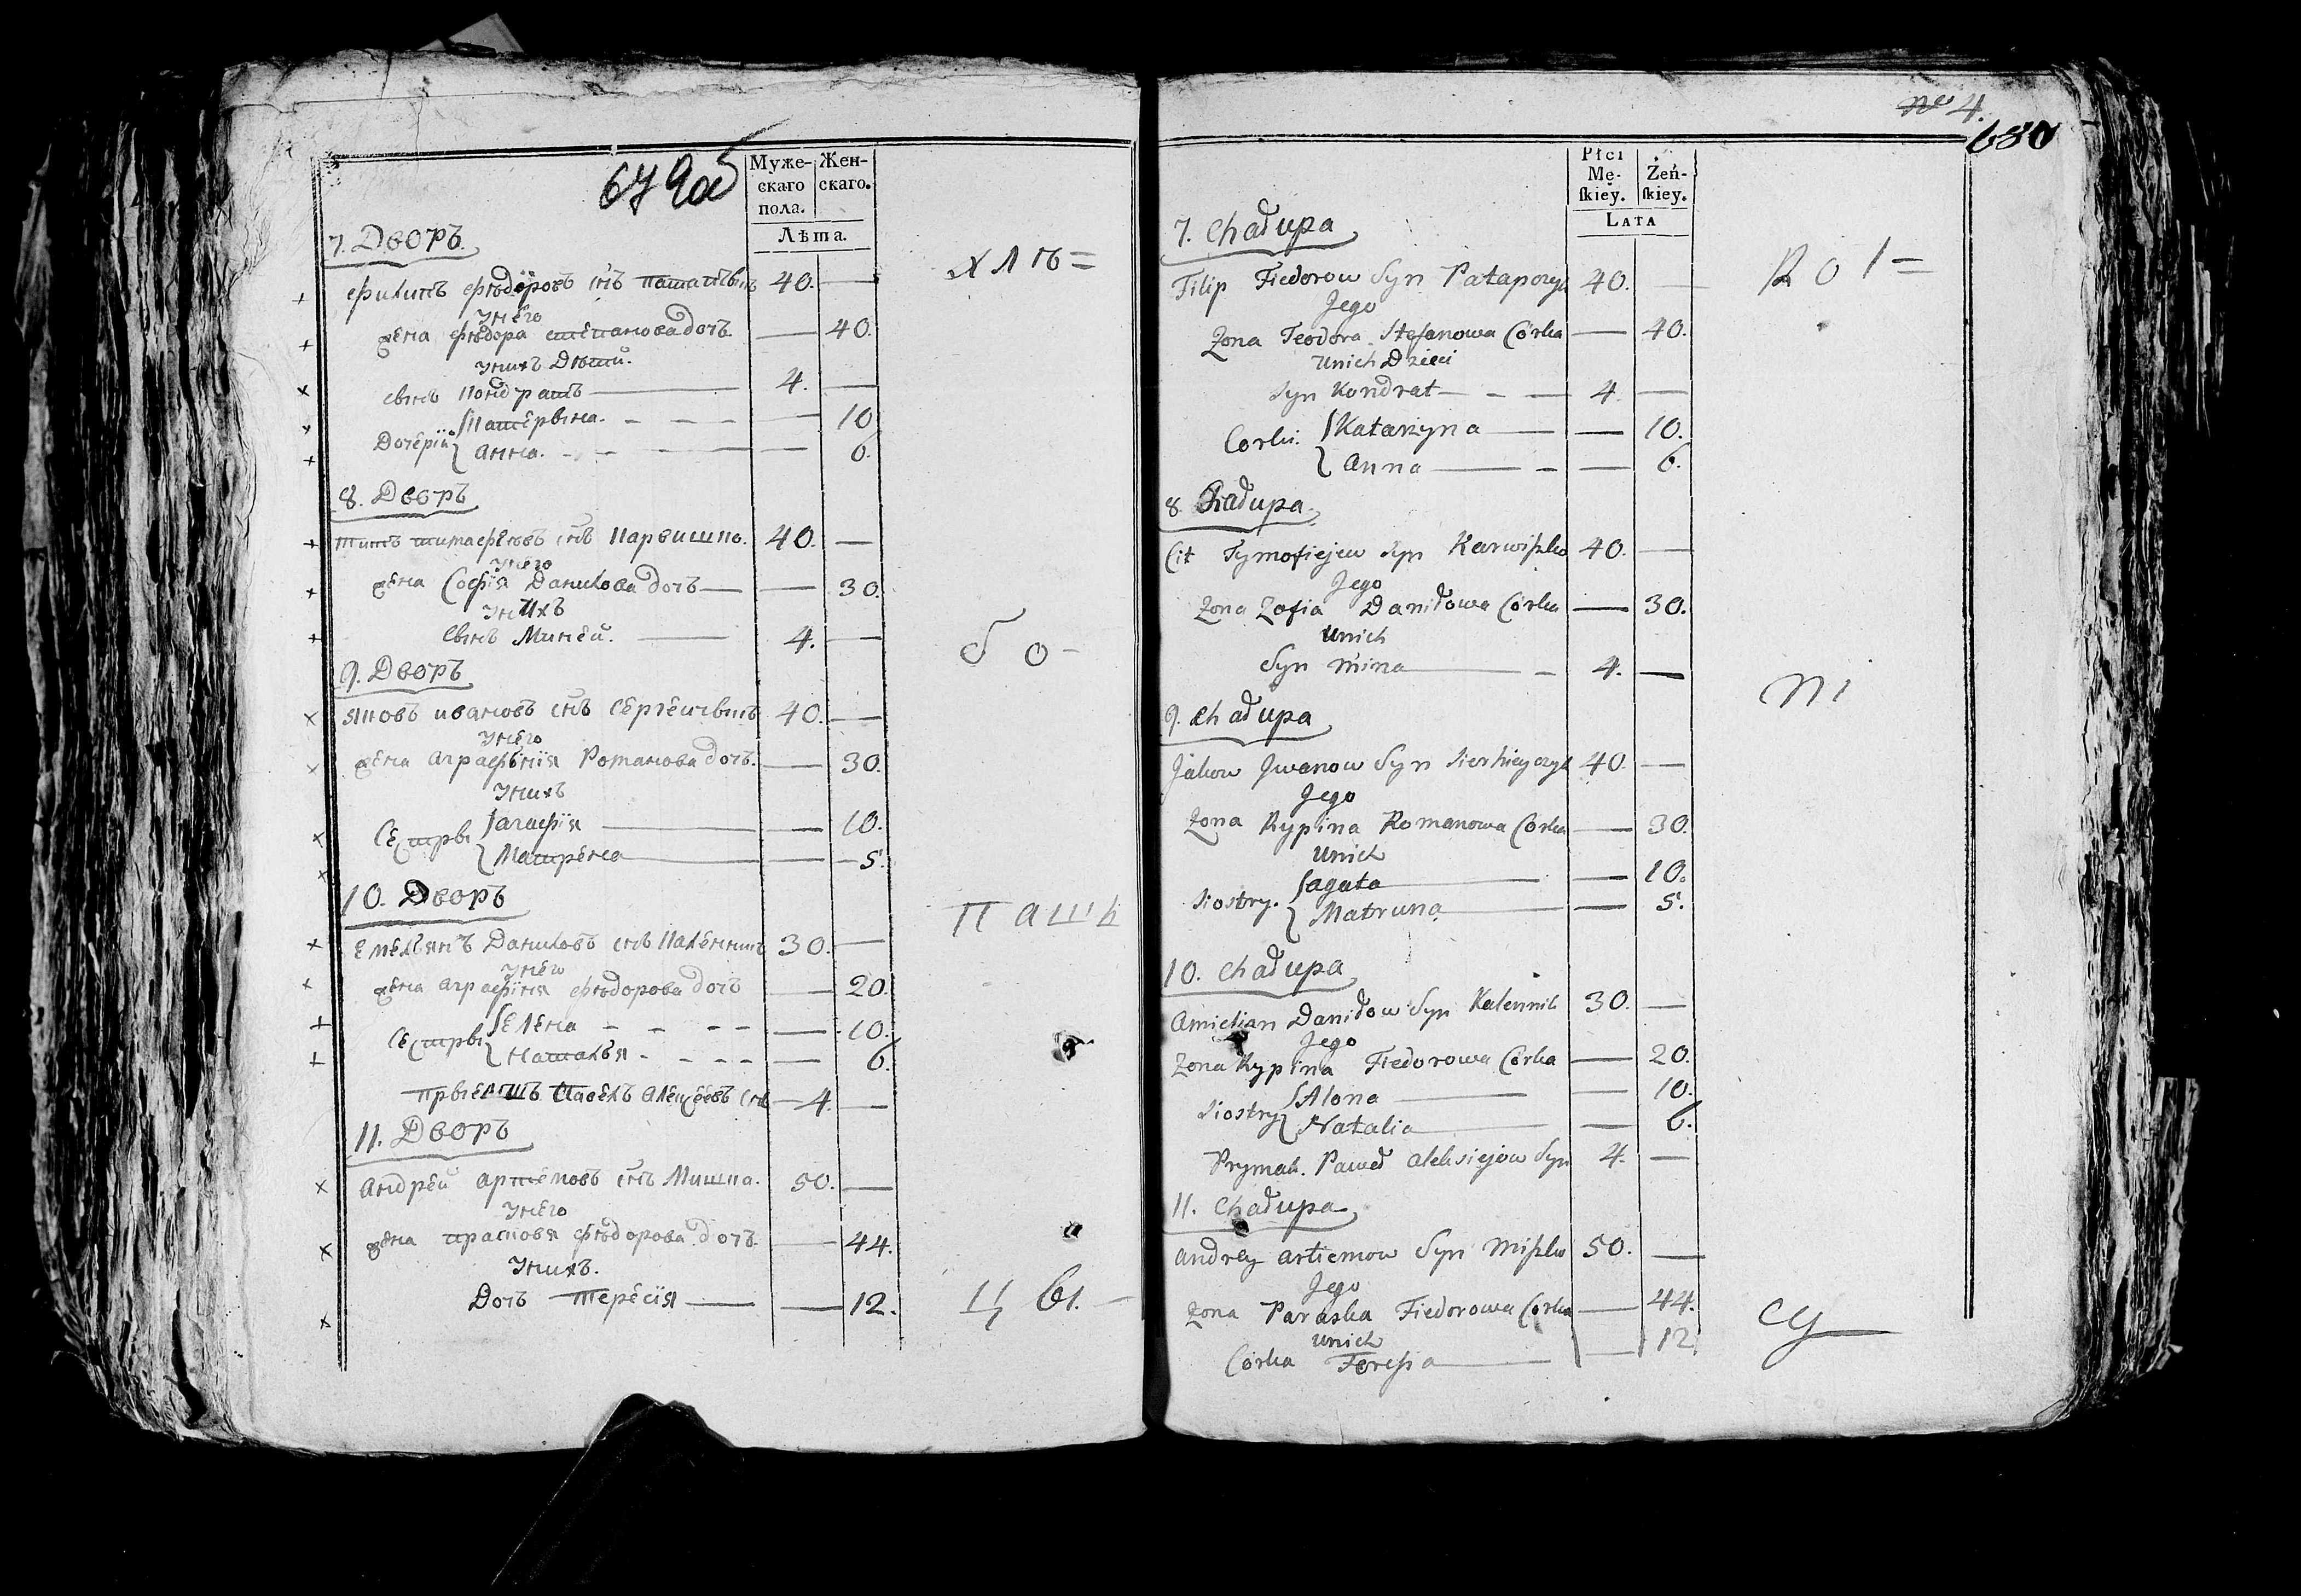 679об
Муже-
скаго
пола.
Жен-
скаго.
Лѣта.
7. Дворъ.
Филипъ Фѣдоровъ снъ Потапѣвичъ 40. —
у него
жена Фѣдора Степанова дочь. — 40.
у нихъ Дѣти.
сынъ Кондратъ — 4. —
Дочерїи { Катерына. — 10
Анна. — 6.
8. Дворъ
Титъ Тимафеѣвъ снъ Карвишко. 40. —
у него
жена Софїя Данилова дочь — 30.
у нихъ
сынъ Миней. — 4. —
9. Дворъ
Яковъ Ивановъ снъ Сергеичъвичъ 40. —
у него
жена Аграфѣнїя Романова дочь. — 30.
у нихъ
Сестры { Агафїя — 10.
Матрена — 5.
10. Дворъ
Емельянъ Даниловъ снъ Каленникъ 30. —
у него
жена Аграфїня Фѣдорова дочь — 20.
Сестры { Елена — 10.
Наталья — 6.
прыемышъ Павелъ Алексѣевъ снъ — 4. —
11. Дворъ
Андрей Артемовъ снъ Мишка. 50. —
у него
жена Прасковя Фѣдорова дочь. — 44.
у нихъ.
Дочь Тересїя — 12.
ХЛѢ=
б о -
п а ш ь
ц ы. -
№ 4.
680
Płci
Mę-
ſkiey.
Żeń-
ſkiey.
LATA
7. Chałupa
Filip Fiedorow Syn Patapczyk 40. —
Jego
Zona Teodora Stefanowa Córka — 40.
Unich Dzieci
Syn Kondrat — 4. —
Corki. { Katarzyna — 10.
Anna — 6.
8 Chałupa.
Cit Tymofiejew Syn Karwiszko 40. —
Jego
Zona Zofia Daniłowa Córka — 30.
Unich
Syn Mina — 4. —
9. Chałupa
Jakow Jwanow Syn Sierhiejczyk 40. —
Jego
Zona Rypina Romanowa Corka — 30.
Unich
Siostry. { Agata — 10.
Matruna — 5.
10. Chałupa
Amielian Daniłow Syn Kalennik 30. —
Jego
Zona Rypina Fiedorowa Córka — 20.
Siostry { Alona — 10.
Natalia — 6.
Prymak. Paweł Aleksiejow Syn 4. —
11. Chałupa
Andrey Artiemow Syn Miszka 50. —
Jego
Zona Paraska Fiedorowa Córka — 44.
Unich
Córka Teresia — 12.
R o l =
n i
c y